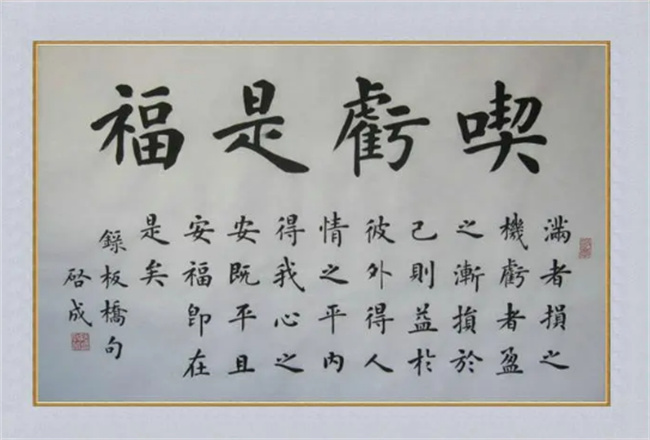 喫虧是福
滿者損之
機虧者盈
之漸損於
己則益於
彼外得人
情之平內
得我心之
安既平且
安福即在
是矣
錄板橋句
啓成